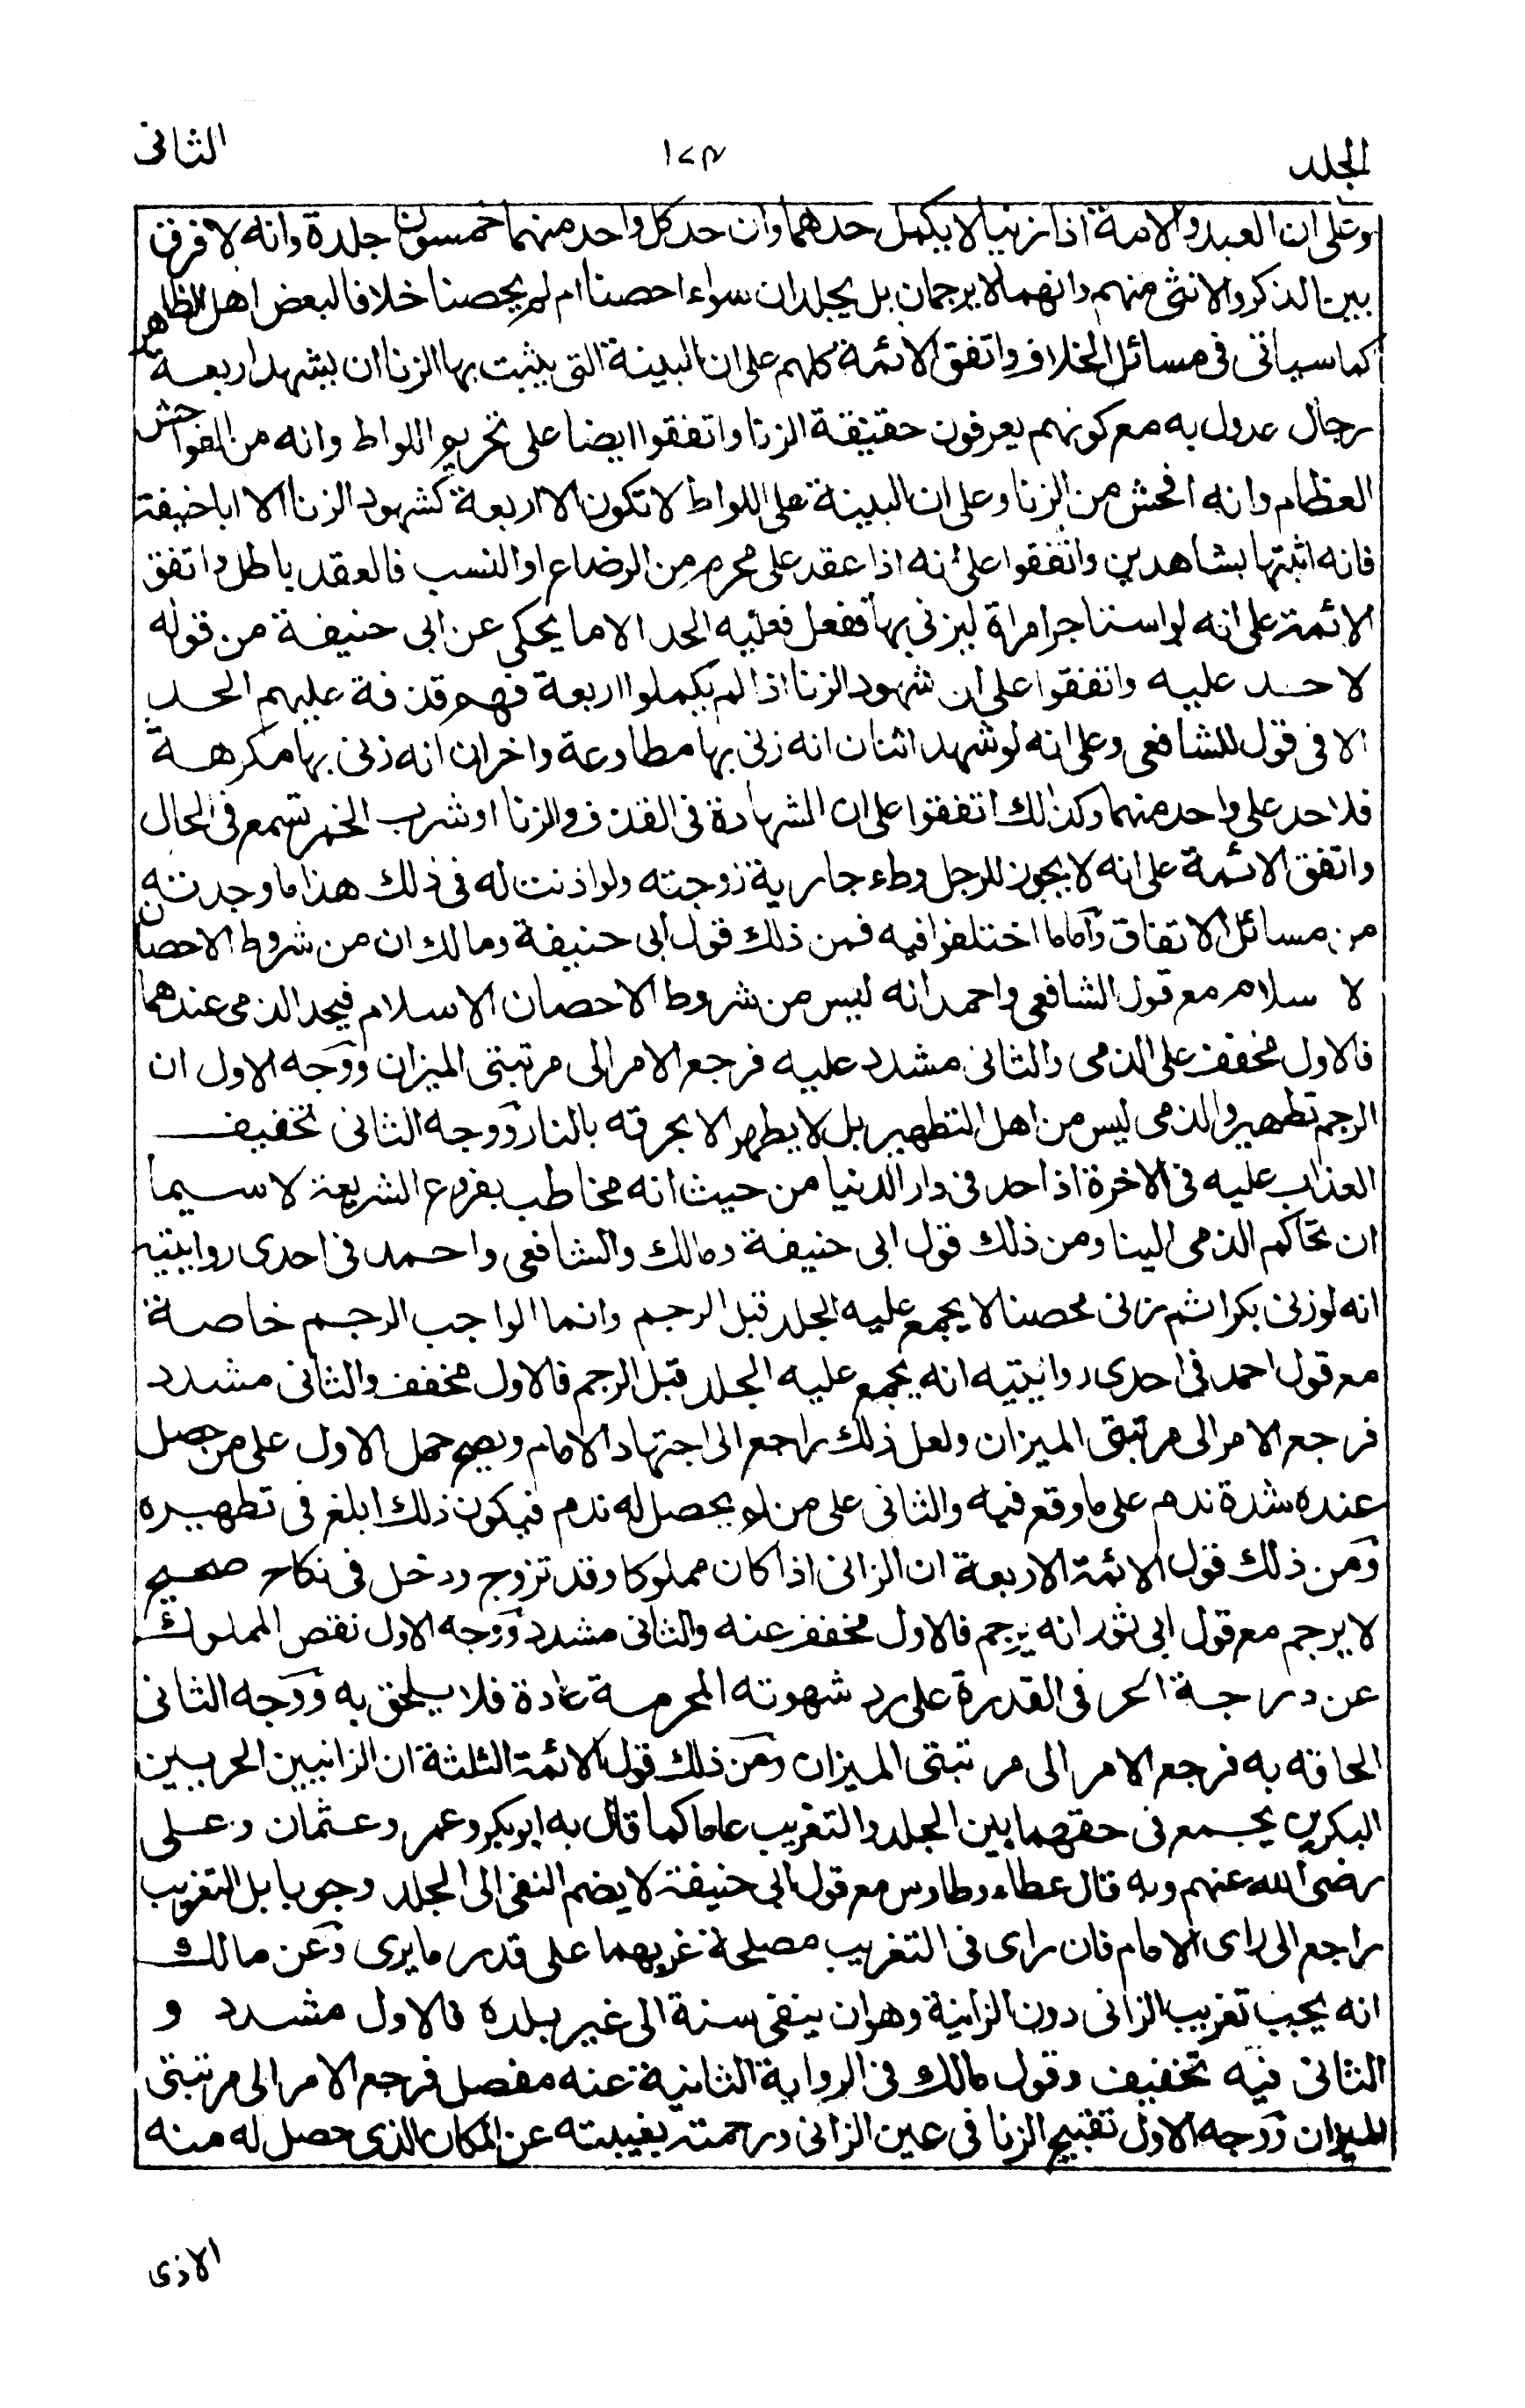 الجلد ١٧٣ الثانى
وعلى ان العبد والامة اذا زنيا لا يكمل حدهما وان حد كل واحد منهما خمسون جلدة وانه لا فرق
بين الذكر والانثى منهم وانهما لا يرجمان بل يجلدان سواء احصنا ام لم يحصنا خلافا لبعض اهل الظاهر
كما سياتى فى مسائل الخلاف واتفق الائمة كلهم على ان البينة التى يثبت بها الزنا ان يشهد اربعة
رجال عدول به مع كونهم يعرفون حقيقة الزنا واتفقوا ايضا على تحريم اللواط وانه من الفواحش
العظام وانه افحش من الزنا وعلى ان البينة على اللواط لا تكون الا اربعة كشهود الزنا الا ابا حنيفة
فانه اثبتها بشاهدين واتفقوا على انه اذا عقد على محرم من الرضاع او النسب فالعقد باطل واتفق
الائمة على انه لو استاجر امراة ليزنى بها ففعل فعليه الحد الا ما يحكى عن ابى حنيفة من قوله
لا حد عليه واتفقوا على ان شهود الزنا اذا لم يكملوا اربعة فهم قذفة عليهم الحد
الا فى قول للشافعى وعلى انه لو شهد اثنان انه زنى بها مطاوعة واخران انه زنى بها مكرهة
فلا حد على واحد منهما وكذلك اتفقوا على ان الشهادة فى القذف والزنا او شرب الخمر تسمع فى الحال
واتفق الائمة على انه لا يجوز للرجل وطء جارية زوجته ولو اذنت له فى ذلك هذا ما وجدته
من مسائل الاتفاق واما ما اختلفوا فيه فمن ذلك قول ابى حنيفة ومالك ان من شروط الاحصان
لا سلام مع قول الشافعى واحمد انه ليس من شروط الاحصان الاسلام فيحد الذمى عندهما
فالاول مخفف على الذمى والثانى مشدد عليه فرجع الامر الى مرتبتى الميزان ووجه الاول ان
الرجم تطهير والذمى ليس من اهل التطهير بل لا يطهر الا بحرقه بالنار ووجه الثانى تخفيف
العذاب عليه فى الاخرة اذا حد فى دار الدنيا من حيث انه مخاطب بفروع الشريعة لا سيما
ان تحاكم الذمى الينا ومن ذلك قول ابى حنيفة ومالك والشافعى واحمد فى احدى روايتيه
انه لو زنى بكرا ثم زنى محصنا لا يجمع عليه الجلد قبل الرجم وانما الواجب الرجم خاصة
مع قول احمد فى احدى روايتيه انه يجمع عليه الجلد قبل الرجم فالاول مخفف والثانى مشدد
فرجع الامر الى مرتبتى الميزان ولعل ذلك راجع الى اجتهاد الامام ويصح حمل الاول على من حصل
عنده شدة ندم على ما وقع فيه والثانى على من لم يحصل له ندم فيكون ذلك ابلغ فى تطهيره
ومن ذلك قول الائمة الاربعة ان الزانى اذا كان مملوكا وقد تزوج ودخل فى نكاح صحيح
لا يرجم مع قول ابى ثور انه يرجم فالاول مخفف عنه والثانى مشدد ووجه الاول نقص المملوك
عن درجة الحر فى القدرة على رد شهوته المحرمة عادة فلا يلحق به ووجه الثانى
الحاقه به فرجع الامر الى مرتبتى الميزان ومن ذلك قول الائمة الثلثة ان الزانيين الحربيين
البكرين يجمع فى حقهما بين الجلد والتغريب عاما كما قال به ابو بكر وعمر وعثمان وعلى
رضى الله عنهم وبه قال عطاء وطاوس مع قول ابى حنيفة لا يضم النفى الى الجلد وجوبا بل التغريب
راجع الى راى الامام فان راى فى التغريب مصلحة غربهما على قدر ما يرى وعن مالك
انه يجب تغريب الزانى دون الزانية وهو ان ينفى سنة الى غير بلده فالاول مشدد و
الثانى فيه تخفيف وقول مالك فى الرواية الثانية عنه مفصل فرجع الامر الى مرتبتى
الميزان ووجه الاول تقبيح الزنا فى عين الزانى ورحمته بغيبته عن المكان الذى حصل له منه
الاذى